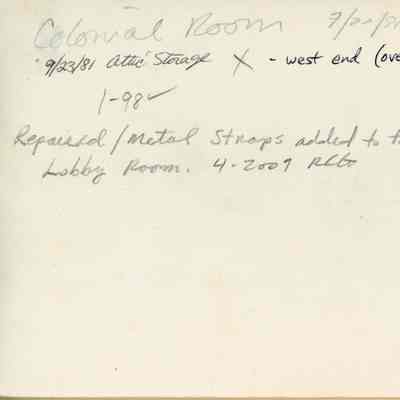 Colonial Room
9/23/81 Attic Storage X - west end (ove
1-98 ✓
Repaired / Metal Straps added to t
Lobby Room. 4-2009